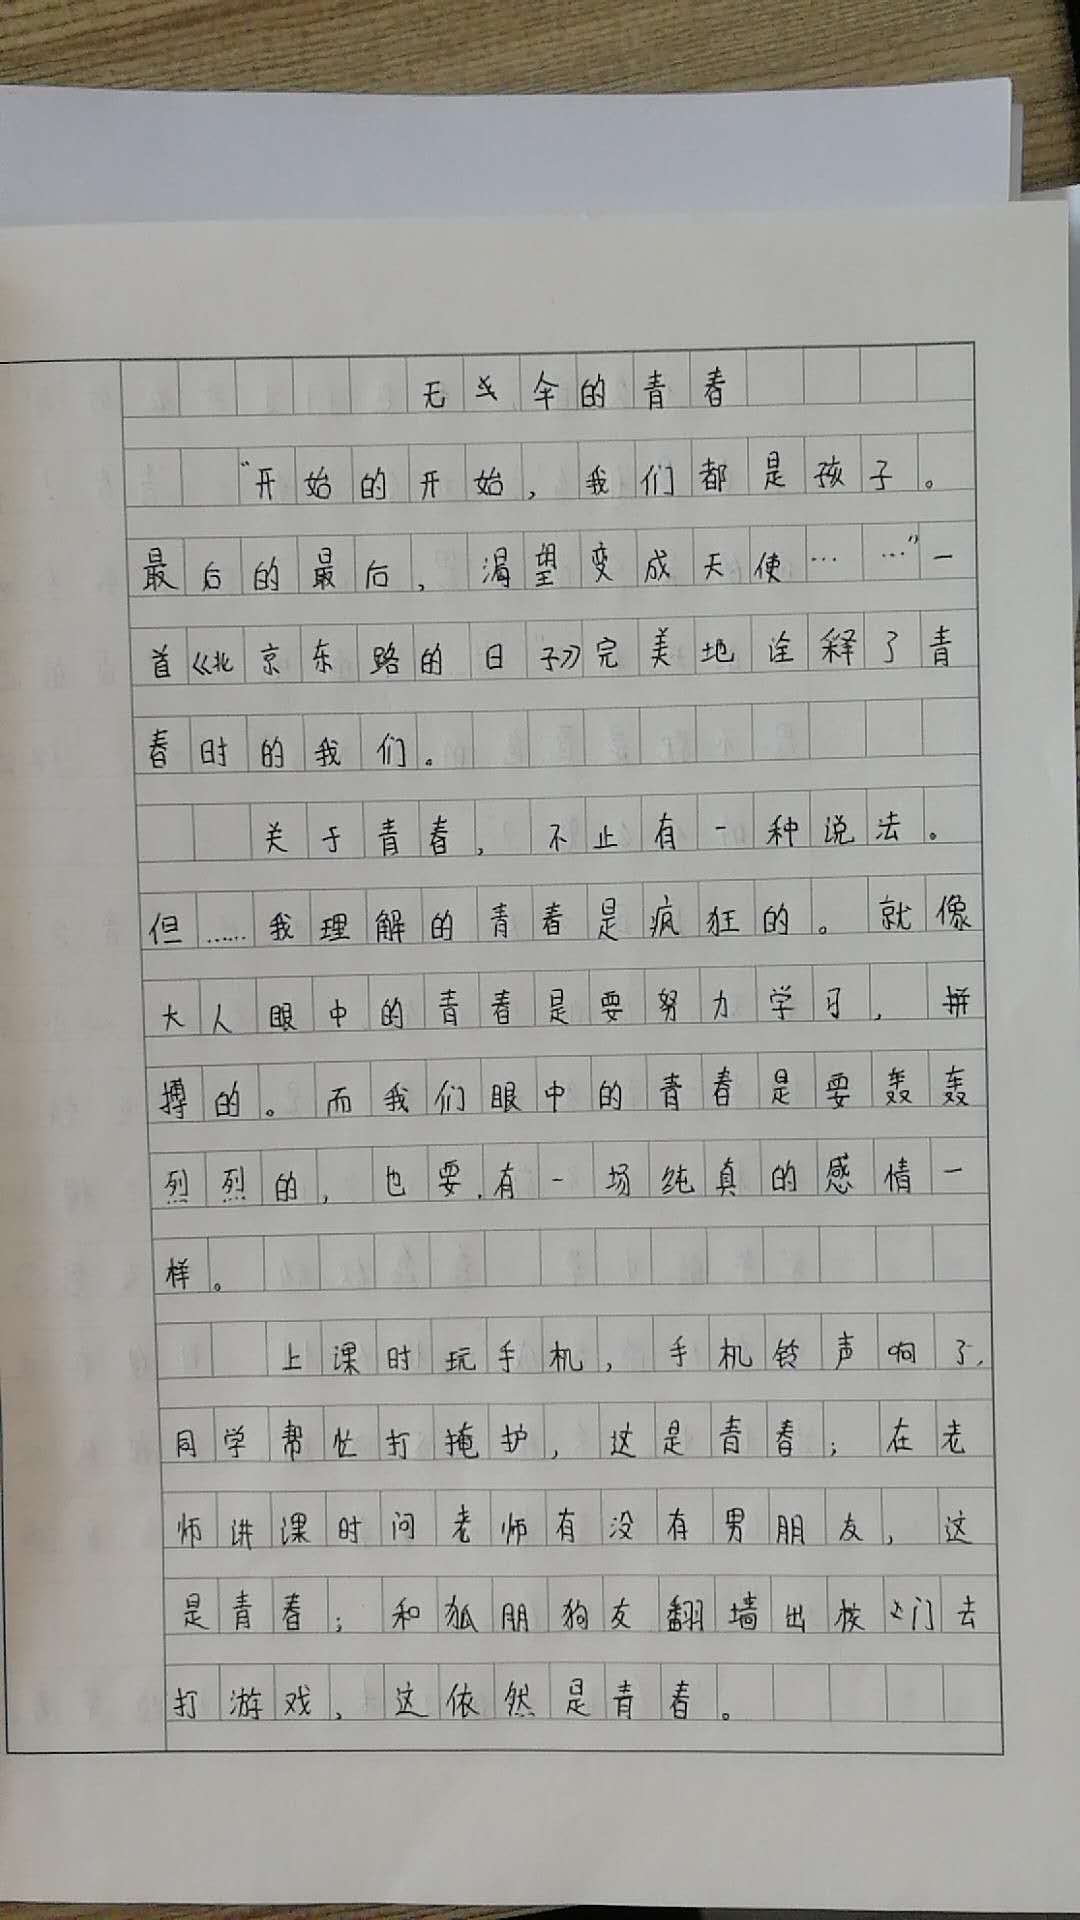 无伞的青春
“开始的开始，我们都是孩子。
最后的最后，渴望变成天使……”一
首《北京东路的日子》完美地诠释了青
春时的我们。
关于青春，不止有一种说法。
但……我理解的青春是疯狂的。就像
大人眼中的青春是要努力学习，拼
搏的。而我们眼中的青春是要轰轰
烈烈的，也要有一场纯真的感情一
样。
上课时玩手机，手机铃声响了，
同学帮忙打掩护，这是青春；在老
师讲课时问老师有没有男朋友，这
是青春；和狐朋狗友翻墙出校门去
打游戏，这依然是青春。